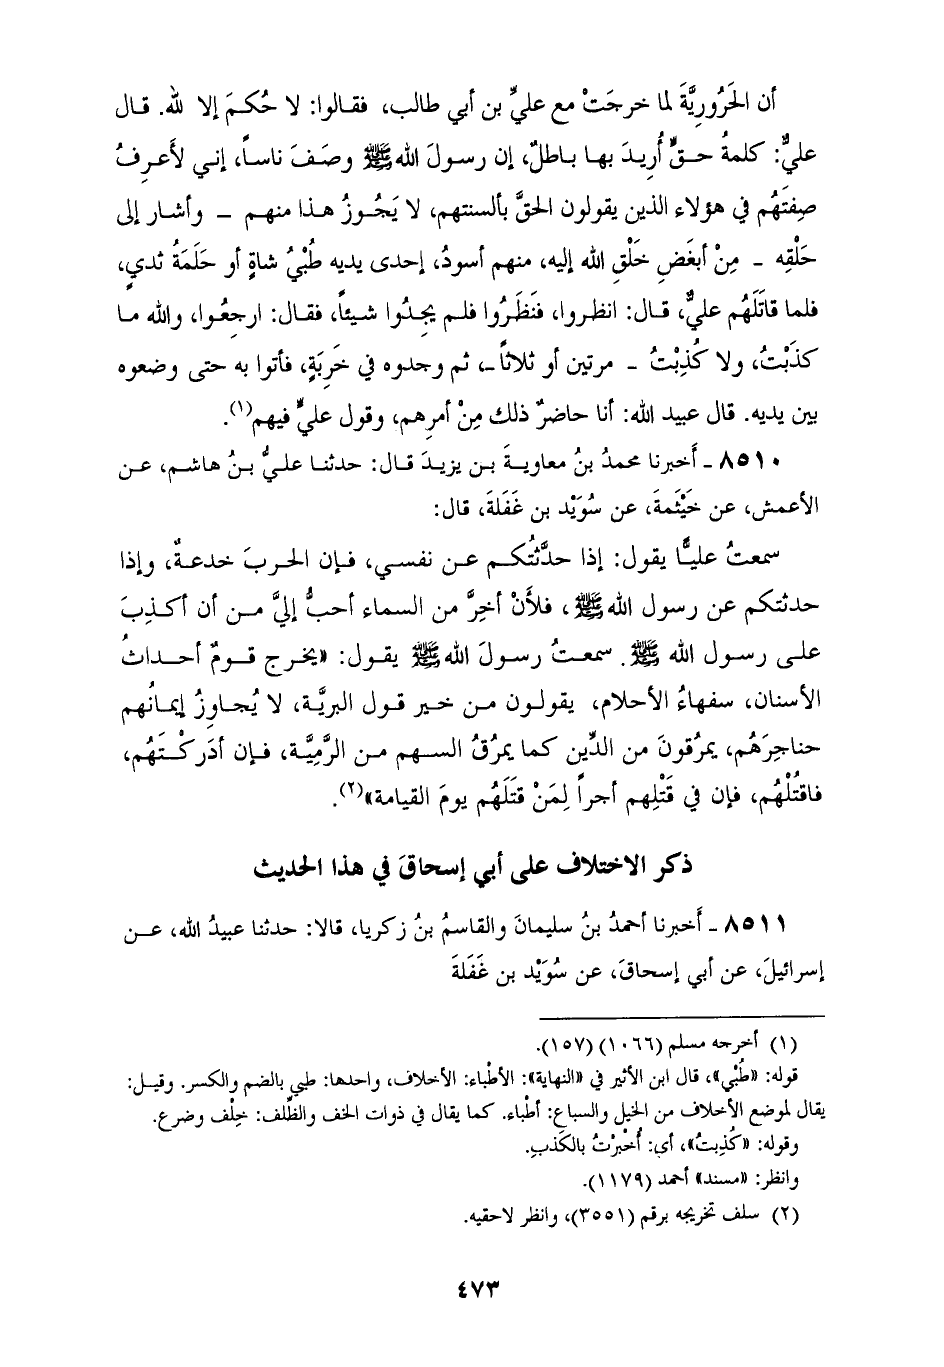 أن الحَرُورِيَّةَ لما خرجَتْ مع عليِّ بن أبي طالب، فقالوا: لا حُكمَ إلا لله. قال
عليٌّ: كلمةُ حقٍّ أُريدَ بها باطلٌ، إن رسولَ الله ﷺ وصَفَ ناساً، إني لأَعرِفُ
صِفتَهُم في هؤلاء الذين يقولون الحقَّ بألسنتهم، لا يَجُوزُ هذا منهم - وأشار إلى
حَلْقِه - مِنْ أبغَضِ خَلْقِ الله إليه، منهم أسودُ، إحدى يديه طُبْيُ شاةٍ أو حَلَمَةُ ثديٍ،
فلما قاتَلَهُم عليٌّ، قال: انظروا، فنَظَرُوا فلم يجِدُوا شيئاً، فقال: ارجعُوا، والله ما
كذَبْتُ، ولا كُذِبْتُ - مرتين أو ثلاثاً -، ثم وجدوه في خَرِبَةٍ، فأتوا به حتى وضعوه
بين يديه. قال عبيد الله: أنا حاضرٌ ذلك مِنْ أمرِهم، وقول عليٍّ فيهم(١).
٨٥١٠ - أَخبرنا محمدُ بنُ معاويةَ بن يزيدَ قال: حدثنا عليُّ بنُ هاشم، عن
الأعمش، عن خَيْثَمةَ، عن سُوَيْد بن غَفَلةَ، قال:
سمعتُ عليًّا يقول: إذا حدَّثتُكم عن نفسي، فإن الحربَ خدعةٌ، وإذا
حدثتكم عن رسول الله ﷺ، فلأَنْ أخِرَّ من السماء أحبُّ إليَّ من أن أكذِبَ
على رسول الله ﷺ. سمعتُ رسولَ الله ﷺ يقول: «يخرج قومٌ أحداثُ
الأسنان، سفهاءُ الأحلام، يقولون من خير قول البريَّة، لا يُجاوِزُ إيمانُهم
حناجِرَهُم، يمرُقونَ من الدِّين كما يمرُقُ السهم من الرَّمِيَّة، فإن أدَركْتَهُم،
فاقتُلْهُم، فإن في قَتْلِهم أجراً لِمَنْ قتَلَهُم يومَ القيامة»(٢).
ذكر الاختلاف على أبي إسحاقَ في هذا الحديث
٨٥١١ - أَخبرنا أحمدُ بنُ سليمانَ والقاسمُ بنُ زكريا، قالا: حدثنا عبيدُ الله، عن
إسرائيلَ، عن أبي إسحاقَ، عن سُوَيْد بن غَفَلةَ
(١) أخرجه مسلم (١٠٦٦) (١٥٧).
قوله: «طُبْي»، قال ابن الأثير في «النهاية»: الأطْباء: الأخلاف، واحدها: طبي بالضم والكسر. وقيل:
يقال لموضع الأخلاف من الخيل والسباع: أطْباء. كما يقال في ذوات الخف والظِّلف: خِلْف وضرع.
وقوله: «كُذِبتُ»، أي: أُخْبِرْتُ بالكَذبِ.
وانظر: «مسند» أحمد (١١٧٩).
(٢) سلف تخريجه برقم (٣٥٥١)، وانظر لاحقيه.
٤٧٣